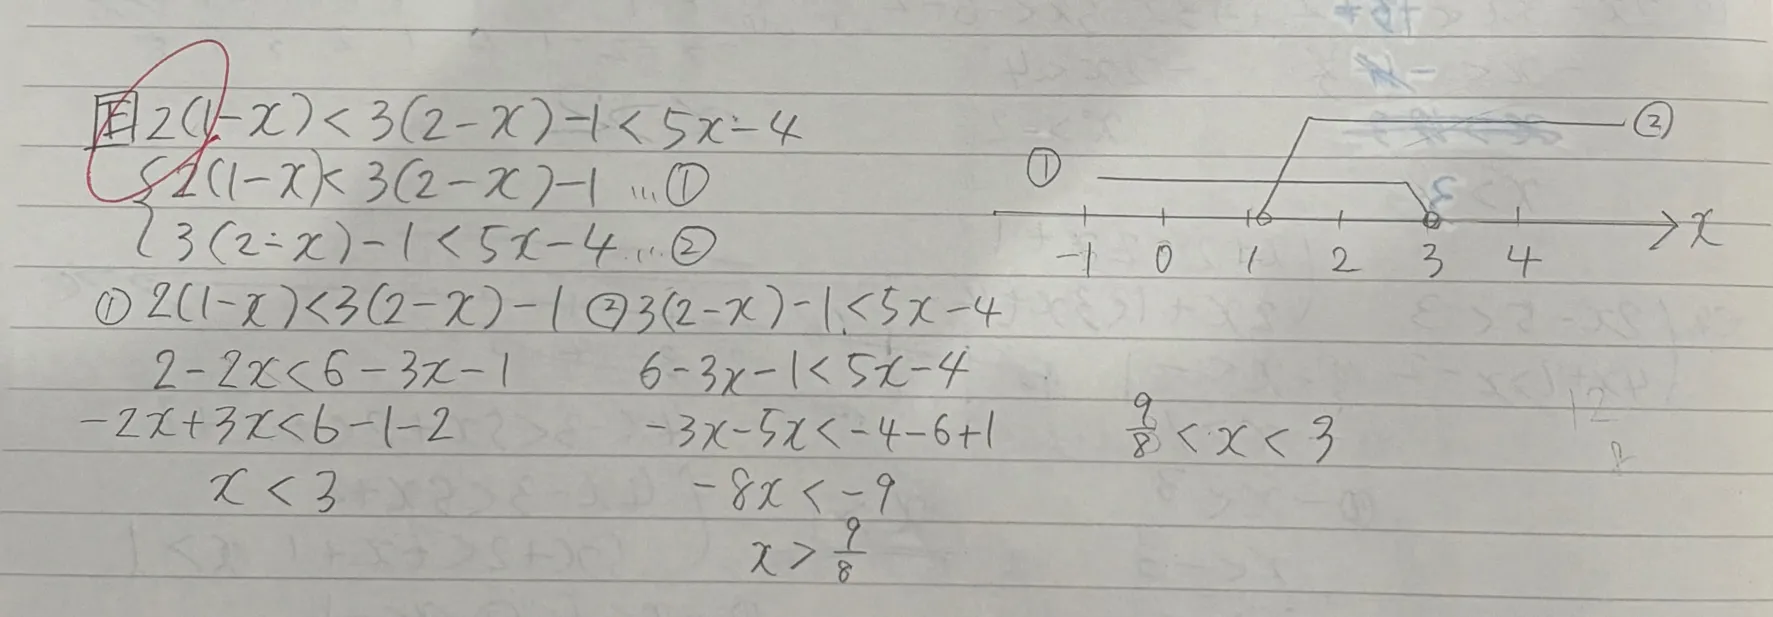 王 2(1-x)<3(2-x)-1<5x-4
{2(1-x)<3(2-x)-1 …①
3(2-x)-1<5x-4 …②
① 2(1-x)<3(2-x)-1 ② 3(2-x)-1<5x-4
2-2x<6-3x-1 6-3x-1<5x-4
-2x+3x<6-1-2 -3x-5x<-4-6+1
x<3 -8x<-9
x>9/8
① ②
-1 0 1 2 3 4 x
9/8<x<3